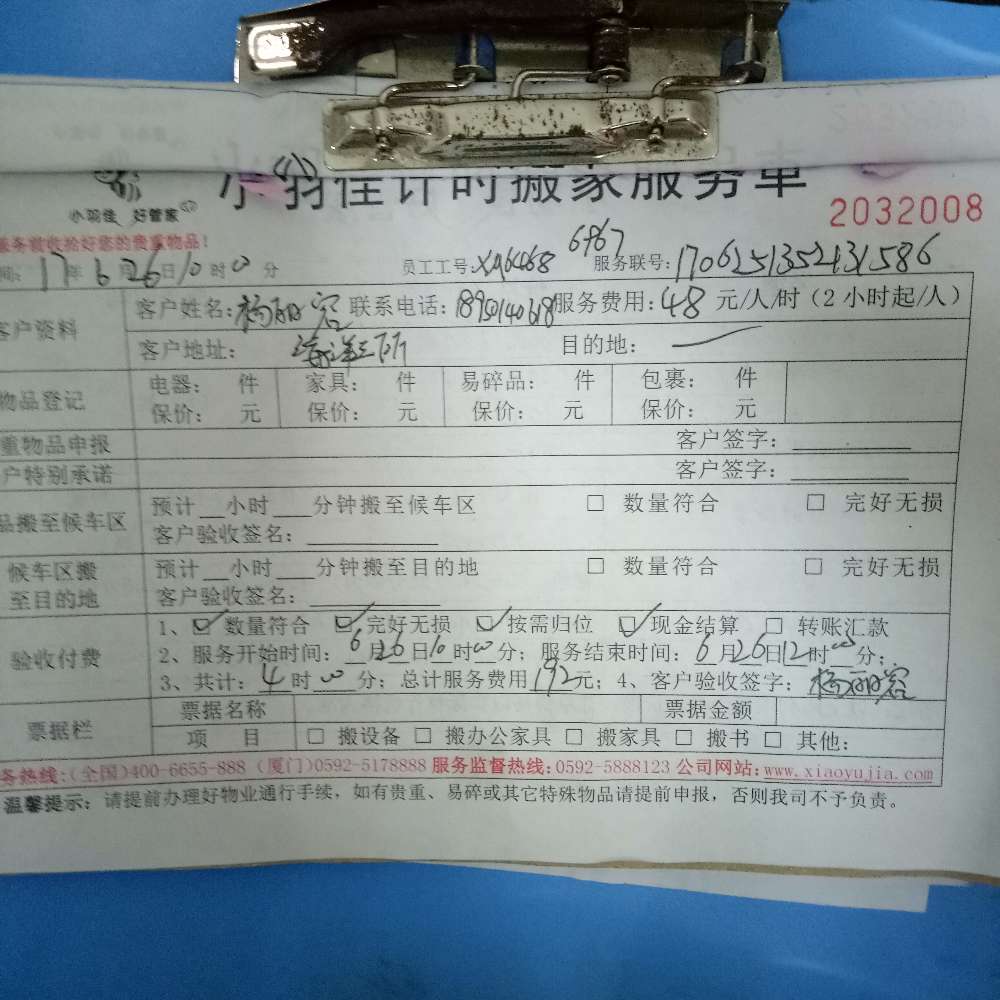 小羽佳计时搬家服务单
小羽佳 好管家
2032008
服务前收拾好您的贵重物品!
间: 17年6月26日10时00分 员工工号: XA6468 6967 服务联号: 170625135213 1586
客户资料 客户姓名: 杨丽容 联系电话: 18950140618 服务费用: 48 元/人/时(2小时起/人)
客户地址: 海洋三所 目的地:
物品登记 电器: 件 家具: 件 易碎品: 件 包裹: 件
保价: 元 保价: 元 保价: 元 保价: 元
重物品申报 客户签字:
户特别承诺 客户签字:
品搬至候车区 预计__小时___分钟搬至候车区 □ 数量符合 □ 完好无损
客户验收签名:
候车区搬至目的地 预计__小时___分钟搬至目的地 □ 数量符合 □ 完好无损
客户验收签名:
验收付费 1、☑ 数量符合 ☑ 完好无损 ☑ 按需归位 ☑ 现金结算 □ 转账汇款
2、服务开始时间: 6月26日10时00分; 服务结束时间: 6月26日12时00分;
3、共计: 4时00分; 总计服务费用192元; 4、客户验收签字: 杨丽容
票据栏 票据名称 票据金额
项 目 □ 搬设备 □ 搬办公家具 □ 搬家具 □ 搬书 □ 其他:
务热线:(全国)400-6655-888 (厦门)0592-5178888 服务监督热线:0592-5888123 公司网站:www.xiaoyujia.com
温馨提示: 请提前办理好物业通行手续,如有贵重、易碎或其它特殊物品请提前申报,否则我司不予负责。